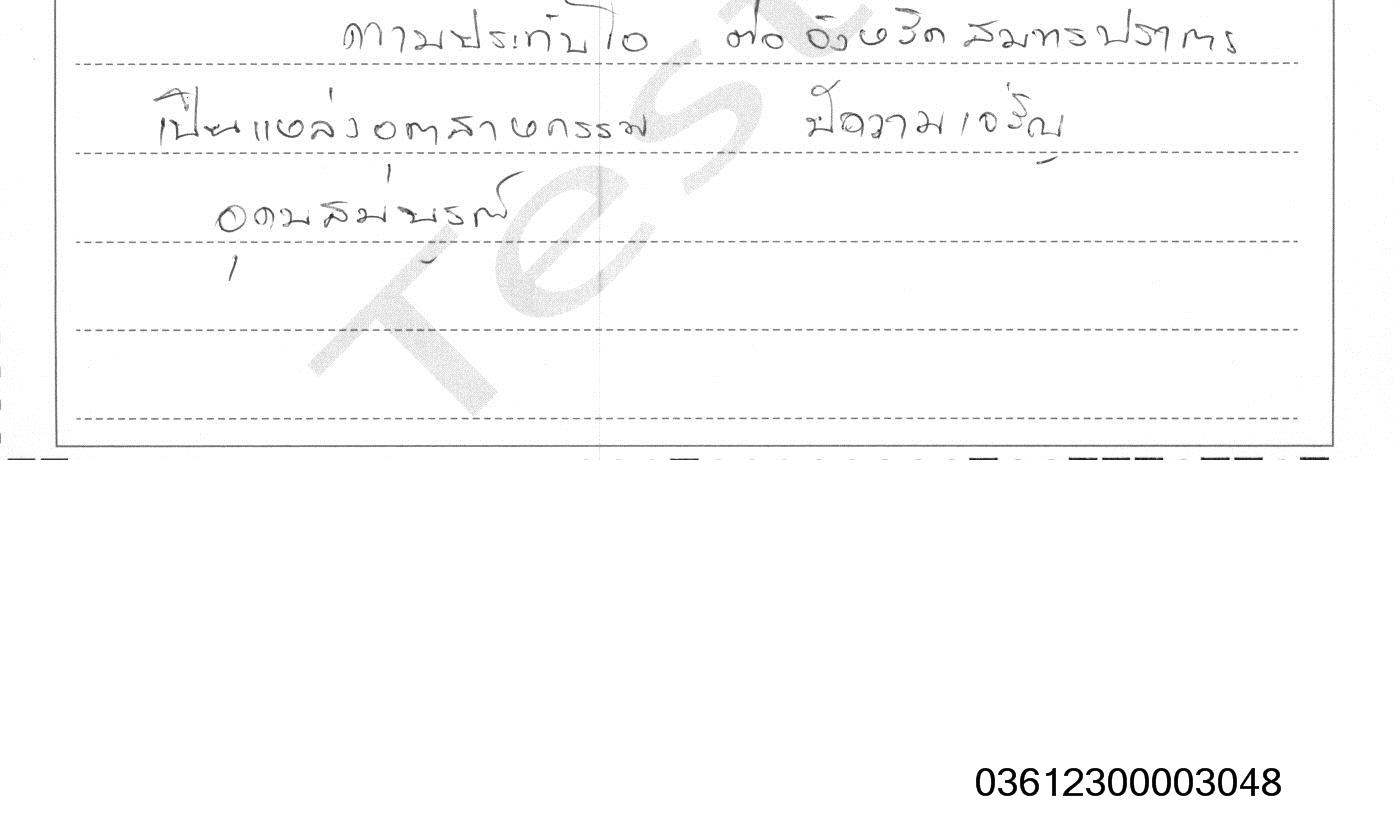 ความประทับใจ ต่อจังหวัดสมุทรปราการ
เป็นแหล่งอุตสาหกรรม มีความเจริญ
อุดมสมบูรณ์
Test
03612300003048